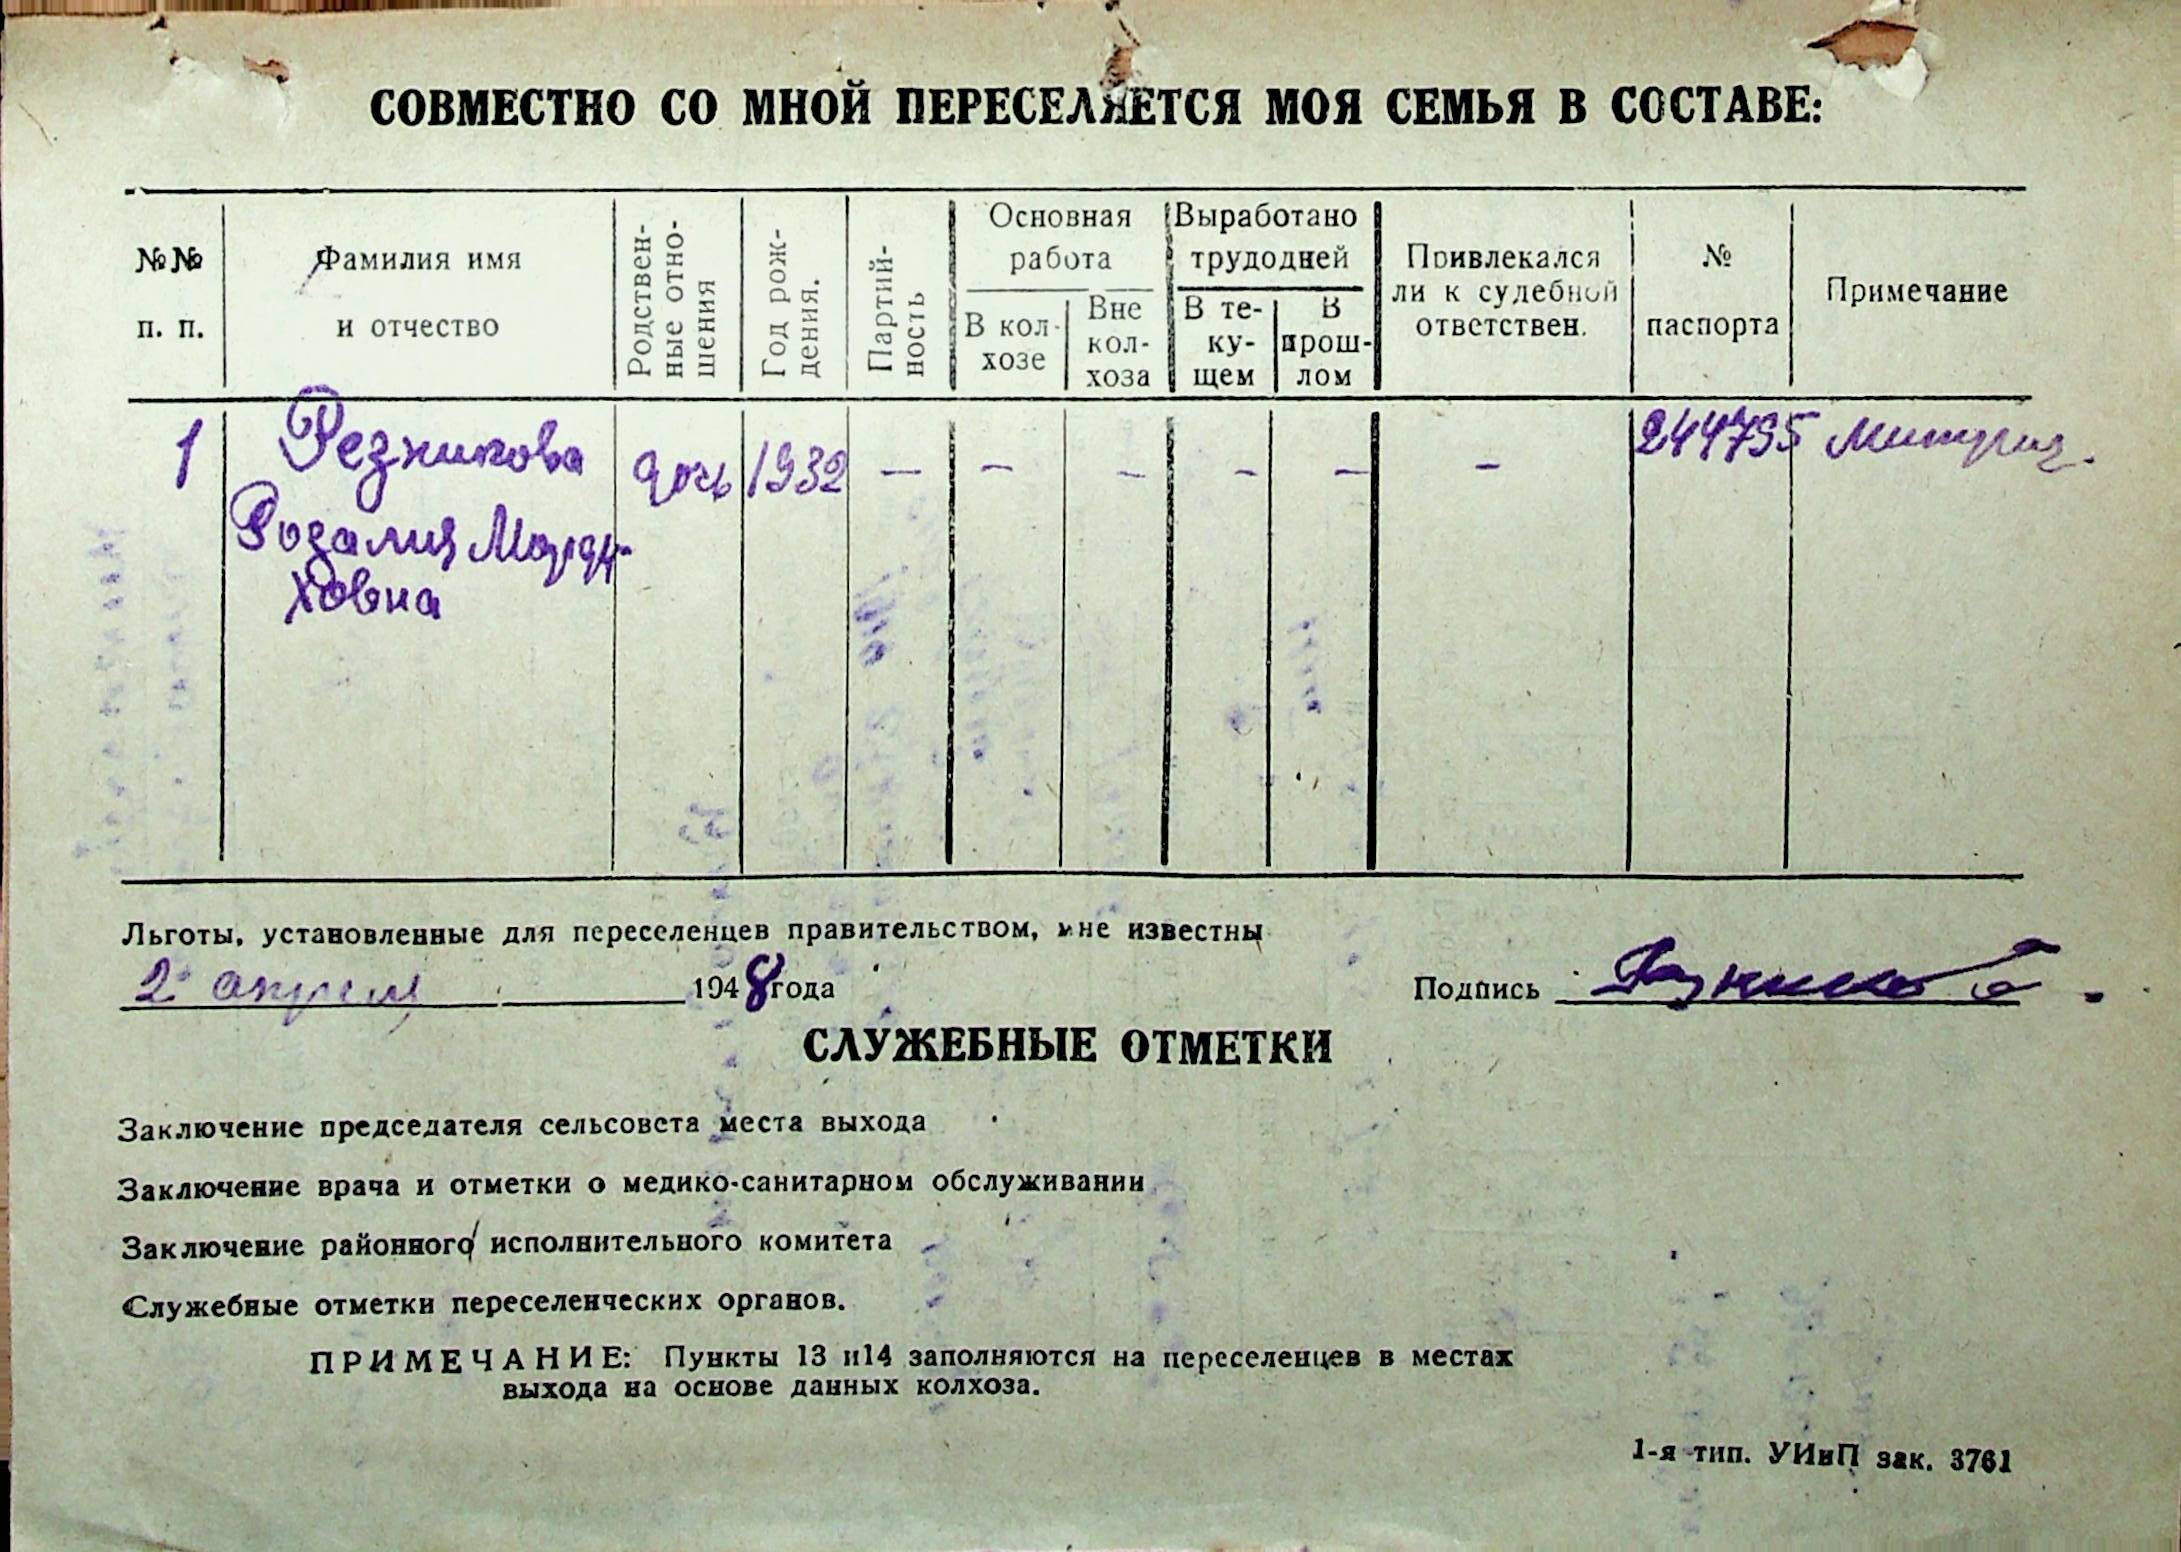 СОВМЕСТНО СО МНОЙ ПЕРЕСЕЛЯЕТСЯ МОЯ СЕМЬЯ В СОСТАВЕ:
№№ п. п.
Фамилия имя и отчество
Родствен-
ные отно-
шения
Год рож-
дения.
Партий-
ность
Основная
работа
В кол-
хозе
Вне
кол-
хоза
Выработано
трудодней
В те-
ку-
щем
В
прош-
лом
Привлекался
ли к судебной
ответствен.
№
паспорта
Примечание
1 Резникова дочь 1932 — — — — — — 244795
Розалия Морд-
ховна
Льготы, установленные для переселенцев правительством, мне известны
2 апреля 1948 года Подпись
СЛУЖЕБНЫЕ ОТМЕТКИ
Заключение председателя сельсовета места выхода
Заключение врача и отметки о медико-санитарном обслуживании
Заключение районного исполнительного комитета
Служебные отметки переселенческих органов.
ПРИМЕЧАНИЕ: Пункты 13 и14 заполняются на переселенцев в местах
выхода на основе данных колхоза.
1-я тип. УИиП зак. 3761